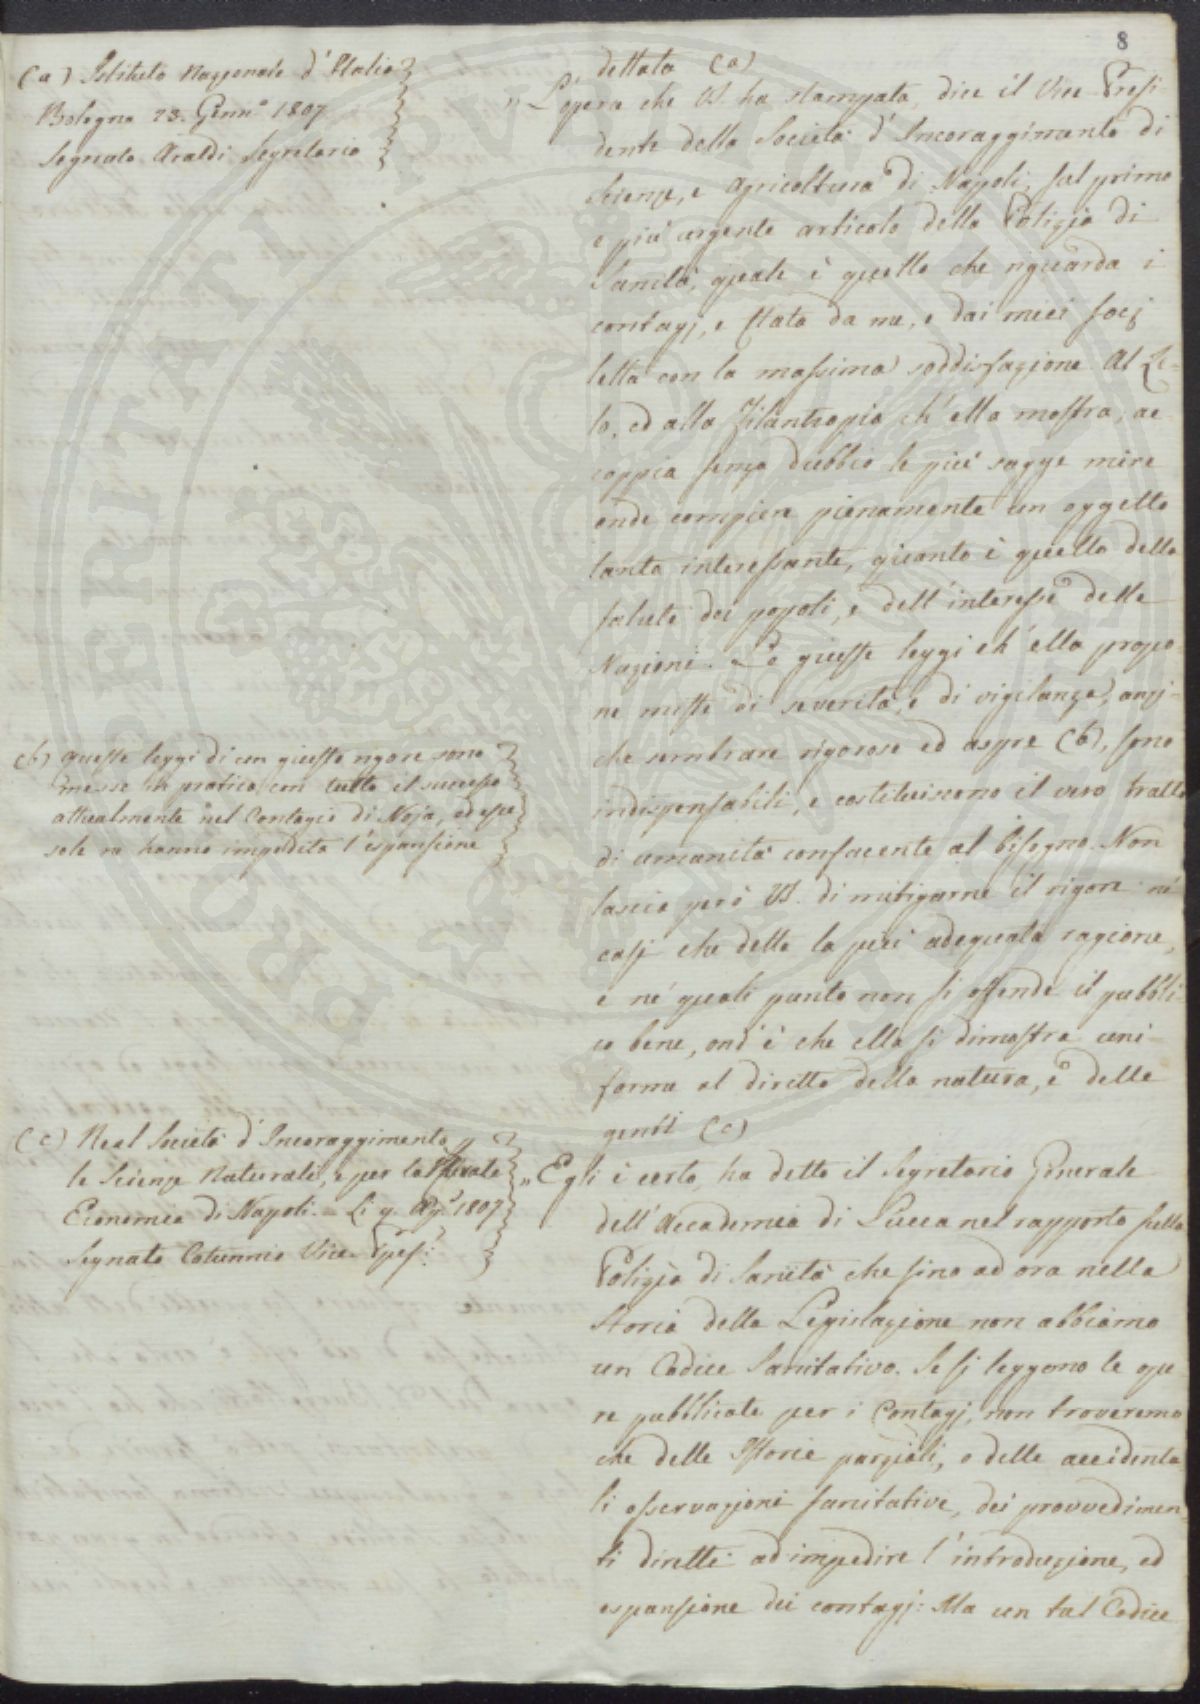 8
(a) Istituto Nazionale d'Italia
Bologna 23. Genn.o 1807
Segnato Araldi Segretario
dettata (a)
„ L'opera che VS. ha stampata, dice il Vice-Presi-
dente della Società d'Incoraggimento di
Scienze, e Agricoltura di Napoli, sul primo
e più urgente articolo della Polizia di
Sanità, quale è quello che riguarda i
contagj, è stata da me, e dai miei socj
letta con la massima soddisfazione. Al Ze-
lo, ed alla Filantropia ch'ella mostra, ac
coppia senza dubbio le più sagge mire
onde compiere pienamente un oggetto
tanto interessante, quanto è quello della
salute dei popoli, e dell'interesse delle
Nazioni. Le giuste leggi ch'ella propo-
ne miste di severità, e di vigilanza, anzi-
che sembrare rigorose ed aspre (b), sono
indispensabili, e costituiscono il vero tratto
di umanità confacente al bisogno. Non
lascia però VS. di mitigarne il rigore né
casi che detta la più adeguata ragione,
e né quali punto non si offende il pubbli-
co bene, ond'è che ella si dimostra uni-
forme al diritto della natura, e delle
genti (c)
(b) queste leggi di un giusto rigore sono
messe in pratica con tutto il successo
attualmente nel Contagio di Noja, ed esse
sole ne hanno impedita l'espansione
(c) Real Società d'Incoraggimento
le Scienze Naturali, e per la Privata
Economia di Napoli. Li 9. Ag.o 1807
Segnato Cotunnio Vice-Pres.:
„ Egli è certo, ha detto il Segretario Generale
dell'Accademia di Lucca nel rapporto sulla
Polizia di Sanità che sino ad ora nella
storia della Legislazione non abbiamo
un Codice Sanitativo. Se si leggono le ope
re pubblicate per i Contagj, non troveremo
che delle Istorie parziali, o delle accidenta
li osservazioni sanitative, dei provvedimen
ti diretti ad impedire l'introduzione, ed
espansione dei contagj: Ma un tal Codice
PROSPERITATI PUBLICAE